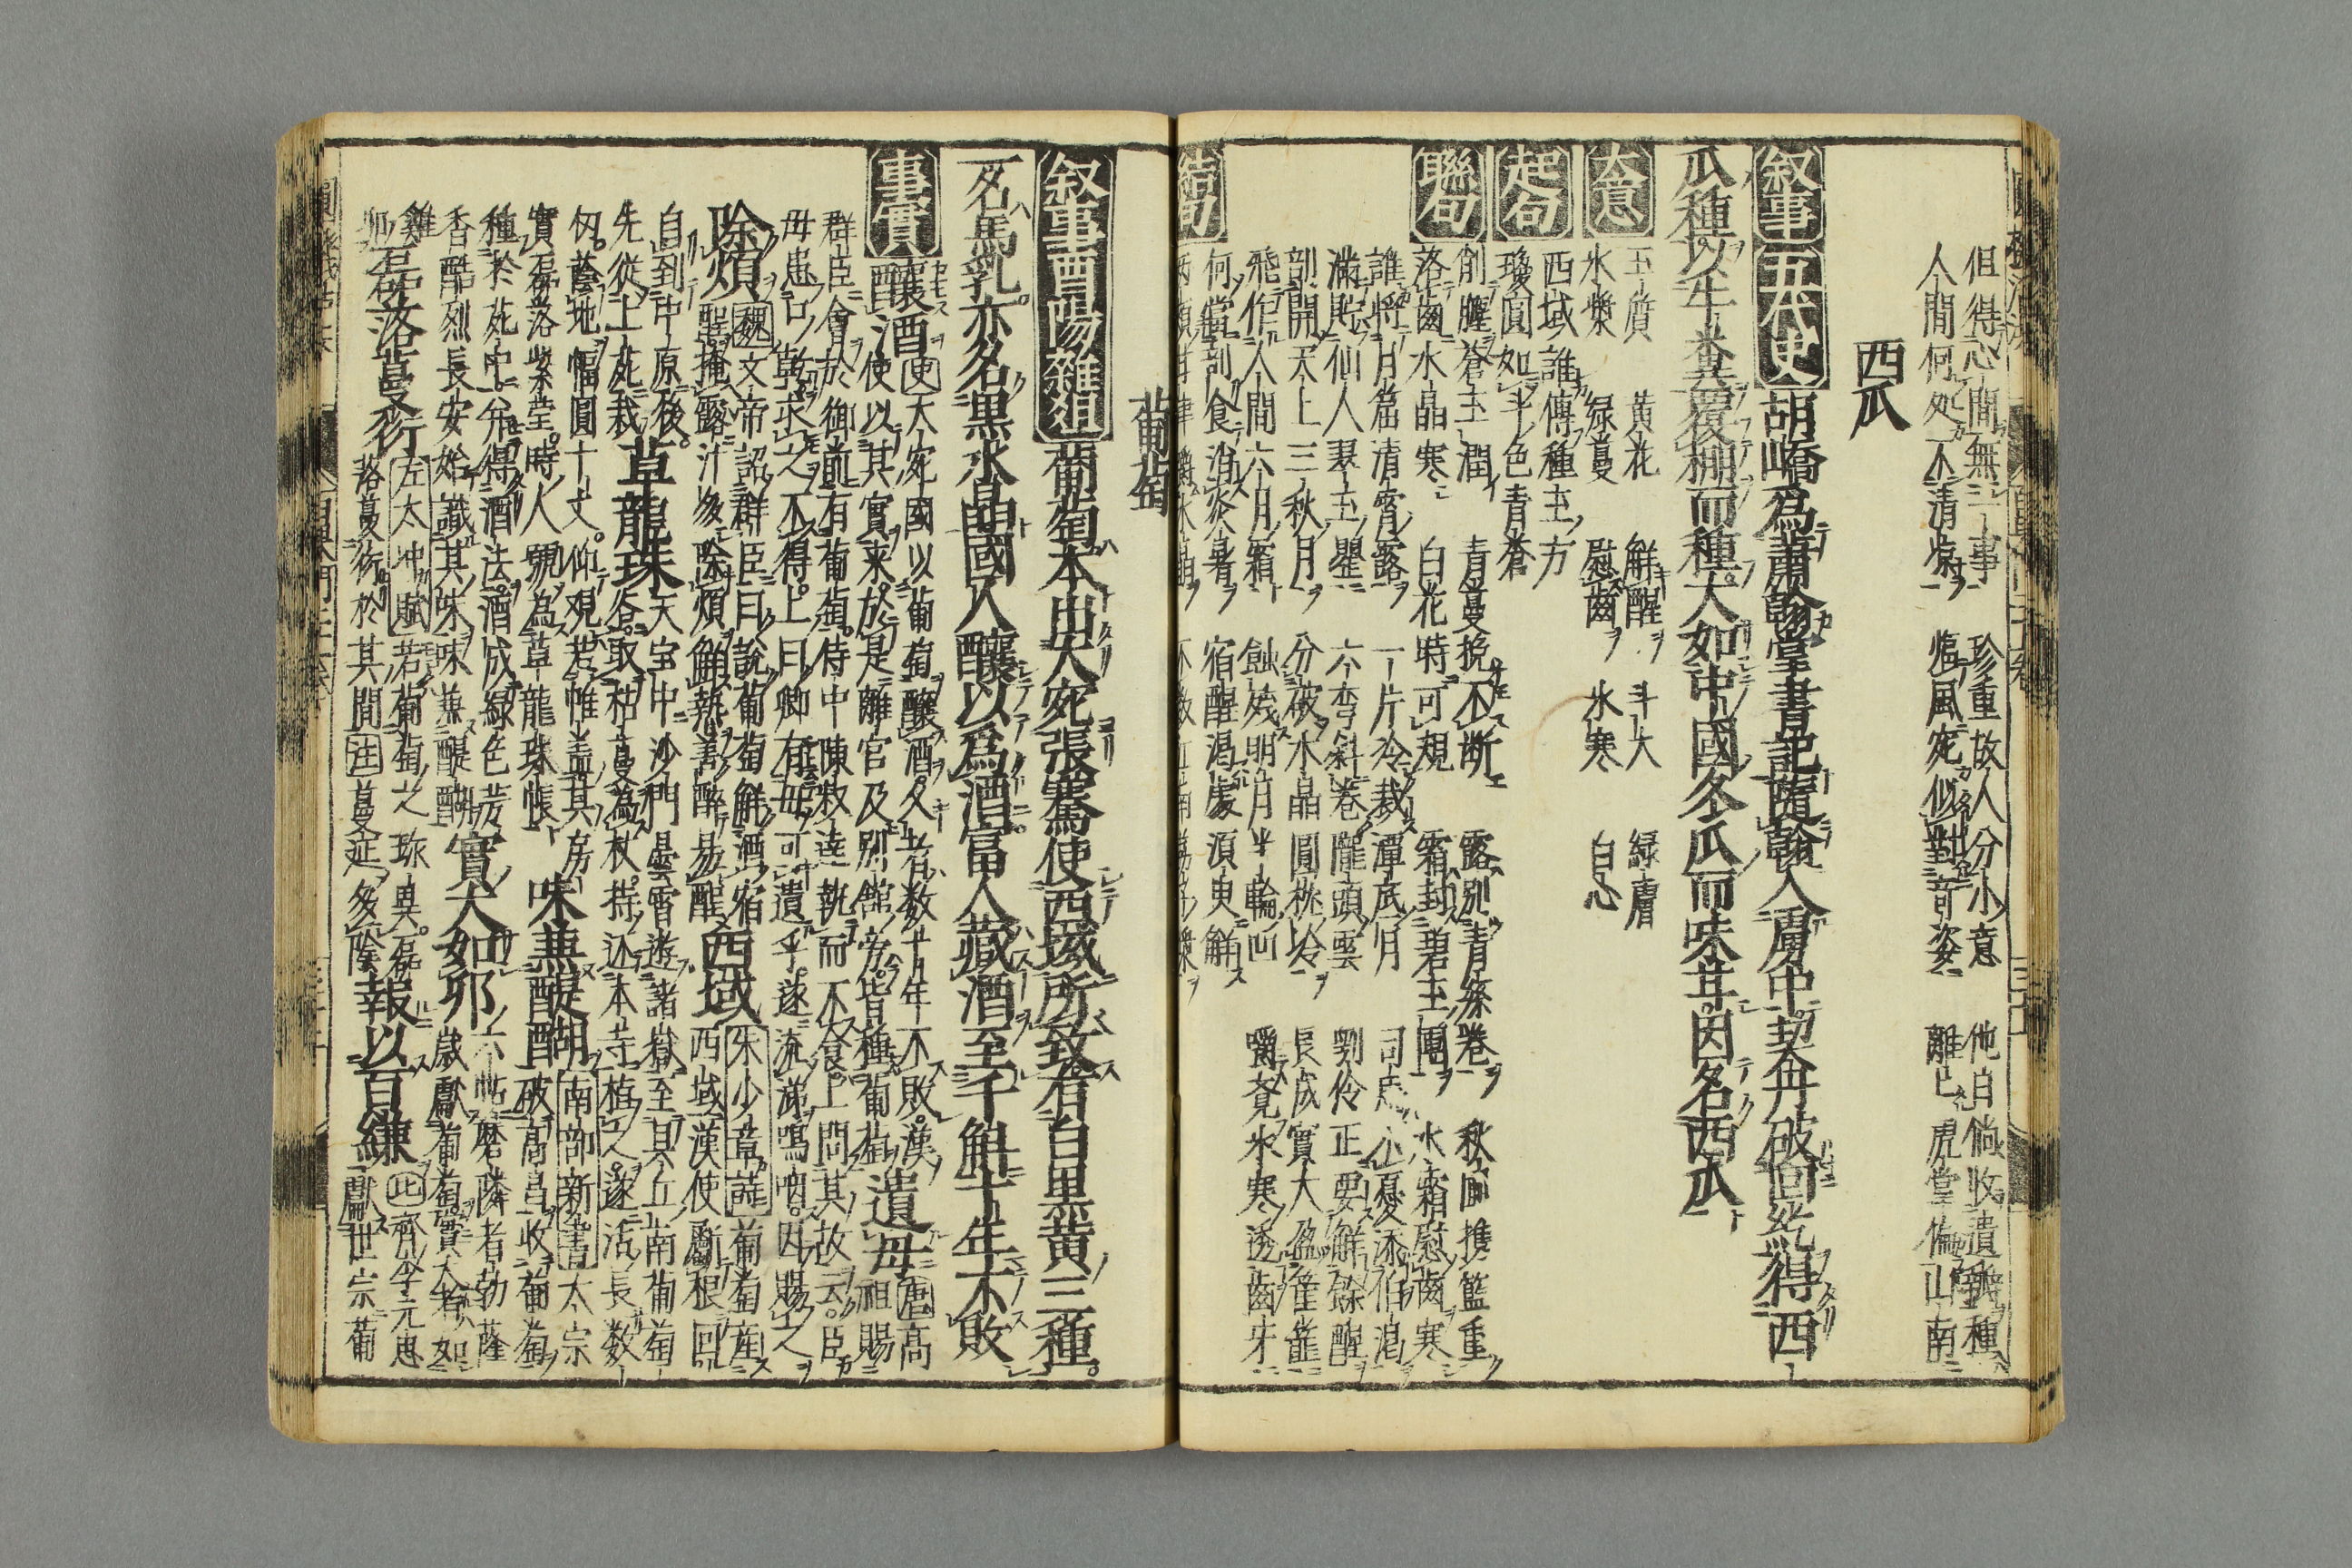 但得心閒無一事 珍重故人分小意 他日倘收遺種
人間何処不清凉 臨風宛似對奇姿 離已虎堂偏山南
西瓜
叙事 五代史 胡嶠爲蕭翰掌書記隨翰入虜中契丹破回紇得西
瓜種以牛糞覆棚而種大如中國冬瓜而味甘因名西瓜
大意 玉質 黄花 解醒 斗大 緑膚
水漿 緑蔓 慰齒 氷寒 白心
起句 西域誰傳種玉方
瓊圓如斗色青蒼
聯句 創腥蒼玉潤 青蔓挽不断 露別青絲卷 秋圃携籃重
落齒水晶寒 白花時可規 霜封碧玉團 氷霜慰齒寒
誰將月窟清霄露 一片冷裁潭底月 司馬 憂添伯渇
滿貯仙人翠玉罌 六弯斜卷隴頭雲 劉伶正要解餘醒
剖開天上三秋月 分破水晶圓 長成實大盈筐
飛作人間六月霜 蝕殘明月半輪 嚼覚氷寒透齒牙
結句 何當剖食消炎暑 宿醒渇處須曳解
葡萄
叙事 酉陽雜俎 葡萄本出大宛張騫使西域所致有白黒黄三種
一名馬乳亦名黒水晶國人釀以爲酒富人藏酒至千斛十年不敗
事實 釀酒 史 大宛國以葡萄釀酒久者数十年不敗漢
使以其實来於是離宮及別館旁皆種葡萄 遺母 唐 高祖賜
群臣會於御前有葡萄侍中陳叔達執而不食上問其故云臣
母患口乾求之不得上曰卿有母可遺乎遂流涕嗚咽因賜之
除煩 魏 文帝詔群臣曰說葡萄解酒宿
醒掩露汁多除煩解熱善醉易醒 西域 朱少章詩 葡萄産西域漢使斸根回
自到中原後
先從上苑栽 草龍珠 天宝中沙門曇霄遊諸嶽至其丘南葡萄
谷取枯蔓為杖持还本寺植之遂活長数
仞蔭地幅圓十丈仰視若帷盖其房
實磊落紫瑩時人號為草龍珠帳 味兼醍醐 南部新書 太宗破髙昌收葡萄
種於苑中分得酒法酒成緑色芳
香酷烈長安始識其味味兼醍醐 實大如卵 六帖 磨隣者勃薩
歳獻葡萄實大者如
雞卵 磊落蔓衍 左太冲賦 若葡萄之珎異磊
落蔓衍於其間 注 蔓延多陰 報以百練 北齊李元忠獻世宗葡